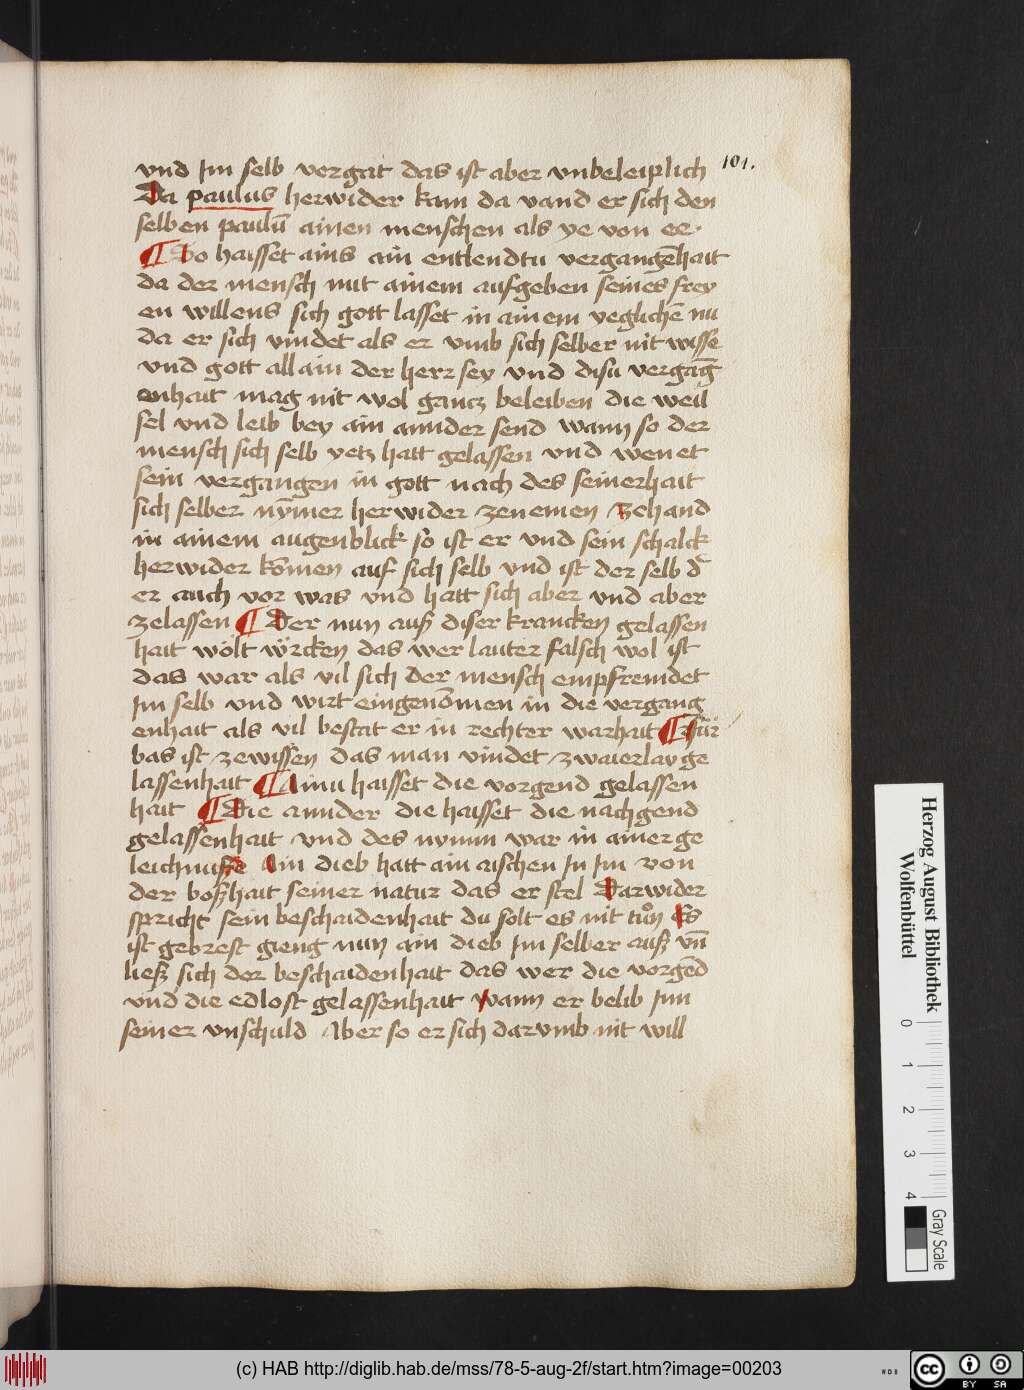 vnd Im selb vergat das ist aber vnbeleiplich 101.
Da paulus herwider kam da vand er sich den
selben paulū ainen menschen als ye von ee
¶ So haisset ains ain entlendtu vergangēhait
da der mensch mit ainem aufgeben seines frey
en willens sich gott lasset in ainem yeglichē nu
da er sich vindet als er vmb sich selber nit wisse
vnd gott allain der herr sey vnd disu vergāg
enhait mag nit wol gancz beleiben die weil
sel vnd leib bey ain annder send wann so der
mensch sich selb yetz hatt gelassen vnd wenet
sein vergangen in gott nach des seinerhait
sich selber nȳmer herwider zenemen Zehand
in ainem augenblick so ist er vnd sein schalck
herwider kōmen auf sich selb vnd ist der selb d
er auch vor was vnd hatt sich aber vnd aber
zelassen ¶ Der nun auß diser krancken gelassen
hait wölt würcken das wer lauter falsch wol ist
das war als vil sich der mensch empfremdet
Im selb vnd wirt eingenōmen in die vergang
enhait als vil bestat er in rechter warhait ¶ Für
bas ist zewissen das man vindet zwaierlay ge
lassenhait ¶ Ainu haisset die vorgend gelassen
hait ¶ Die annder die haisset die nachgend
gelassenhait vnd des nymm war in ainer ge
leichnusse Ain dieb hatt ain aischen In Im von
der boßhait seiner natur das er stel Darwider
spricht sein beschaidenhait du solt es nit tuon Es
ist gebrest gieng nun ain dieb Im selber auß vn̄
ließ sich der beschaidenhait das wer die vorgēd
vnd die edlost gelassenhait wann er belib Inn
seiner vnschuld Aber so er sich darvmb nit will
Herzog August Bibliothek
Wolfenbüttel
0 1 2 3 4
Gray Scale
(c) HAB http://diglib.hab.de/mss/78-5-aug-2f/start.htm?image=00203
WDB
cc BY SA